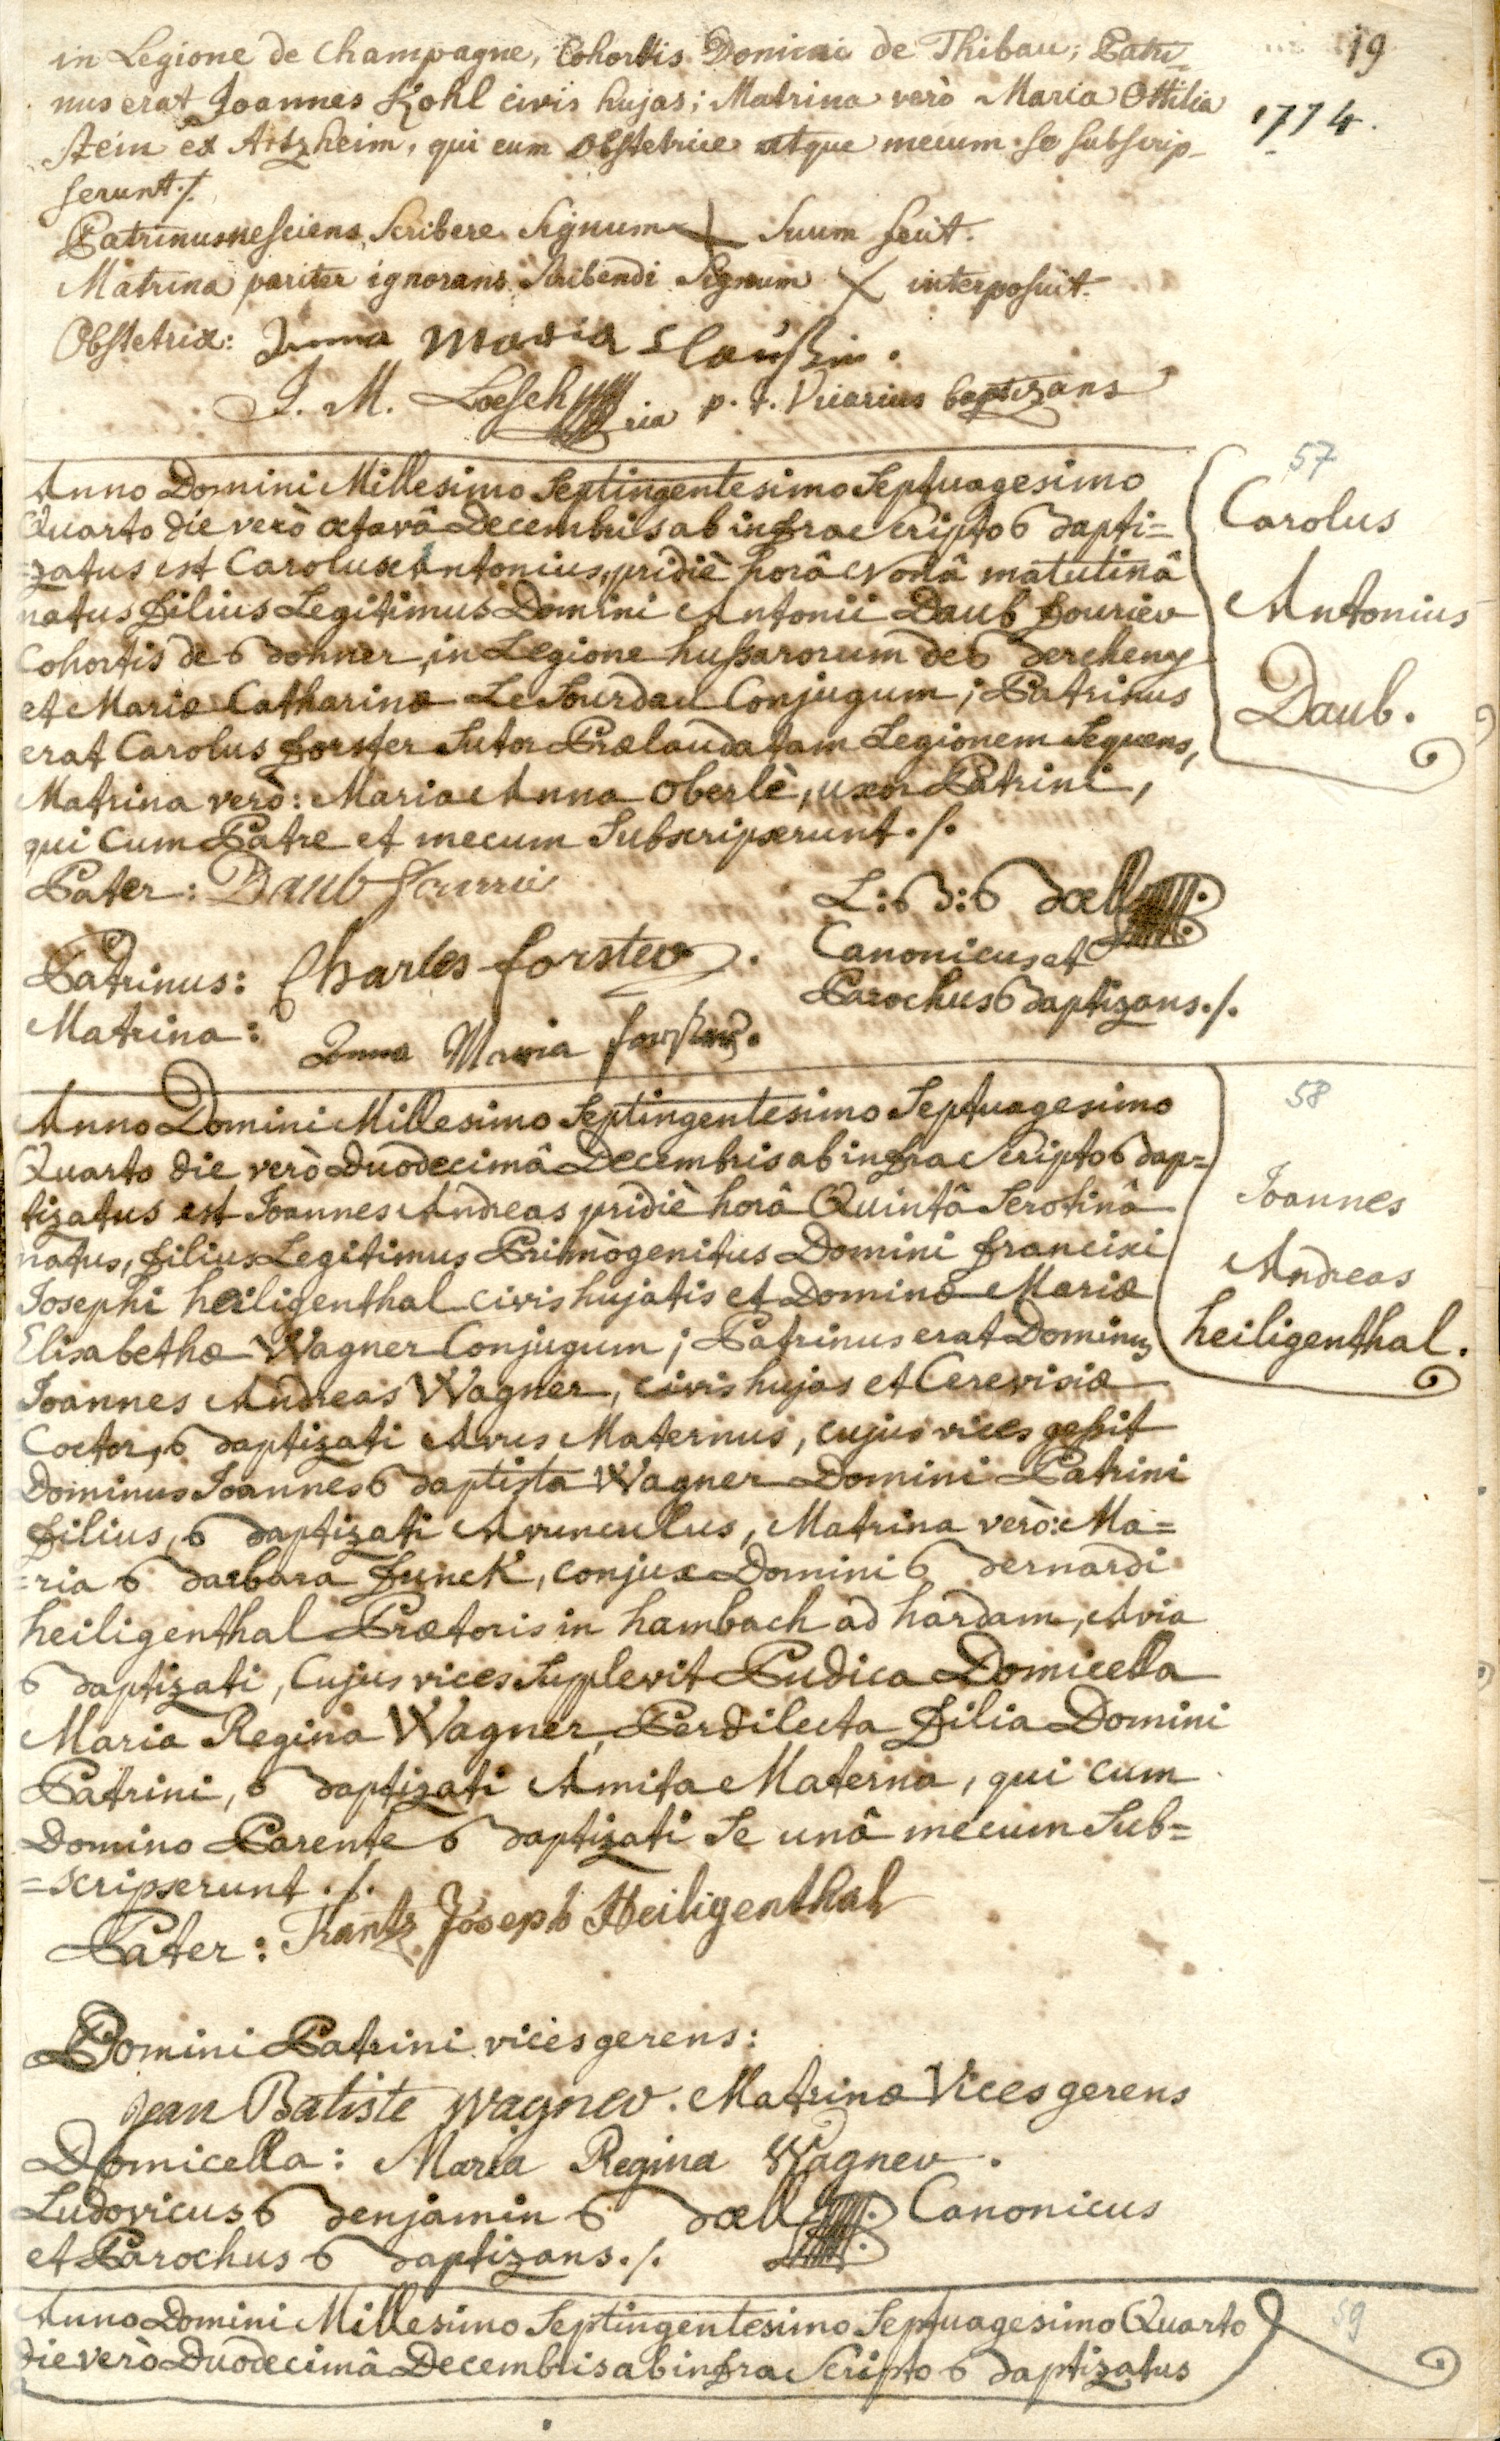 19
1774.
in Legione de Champagne, Cohortis Domini de Thibau; Patri-
nus erat Joannes Kohl civis hujas; Matrina verò Maria Ottilia
Stein ex Artzheim, qui cum Obstetrice atque mecum se subscrip-
serunt ./.
Patrinus nesciens Scribere Signum X Suum fecit.
Matrina pariter ignorans Scribendi Signum X interposuit.
Obstetrix: Anna Maria Claußin.
J. M. Loesch p. t. Vicarius baptizans
57
Carolus
Antonius
Daub.
Anno Domini Millesimo Septingentesimo Septuagesimo
Quarto die verò octavâ Decembris ab infra Scripto Bapti=
=zatus est Carolus Antonius, pridiè horâ Nonâ matutinâ
natus filius Legitimus Domini Antonii Daub fourier
Cohortis de Bohner, in Legione hussarorum de Bercheny
et Mariæ Catharinæ Le Sourdau Conjugum; Patrinus
erat Carolus forster Sutor Prælaudatam Legionem Sequens,
Matrina verò: Maria Anna Oberlè, uxor Patrini,
qui Cum Patre et mecum Subscripserunt ./.
Pater: Daub
L: B: Bœll
Canonicus et
Parochus Baptizans ./.
Patrinus: Charles forster.
Matrina: Anna Maria
58
Joannes
Andreas
heiligenthal.
Anno Domini Millesimo Septingentesimo Septuagesimo
Quarto die verò Duodecimâ Decembris ab infra Scripto Bap=
tizatus est Joannes Andreas pridiè horâ Quintâ Serotinâ
natus, filius Legitimus Primògenitus Domini francisci
Josephi heiligenthal civis hujatis et Dominæ Mariæ
Elisabethæ Wagner Conjugum; Patrinus erat Dominus
Joannes Andreas Wagner, civis hujas et Cerevisiæ
Coctor, Baptizati Avus Maternus, cujus vices gessit
Dominus Joannes Baptista Wagner Domini Patrini
filius, Baptizati Avunculus, Matrina verò: Ma=
=ria Barbara Funck, conjux Domini Bernardi
heiligenthal Prætoris in hambach ad hardam, Avia
Baptizati, Cujus vices Supplevit Pudica Domicella
Maria Regina Wagner, Perdilecta filia Domini
Patrini, Baptizati Amita Materna, qui cum
Domino Parente Baptizati Se unâ mecum Sub=
=scripserunt ./.
Pater: Frantz Joseph Heiligenthal
Domini Patrini vices gerens:
Jean Batiste Wagner. Matrinæ Vices gerens
Domicella: Maria Regina Wagner.
Ludovicus Benjamin Bœll Canonicus
et Parochus Baptizans ./.
59
Anno Domini Millesimo Septingentesimo Septuagesimo Quarto
die verò Duodecimâ Decembris ab infra Scripto Baptizatus